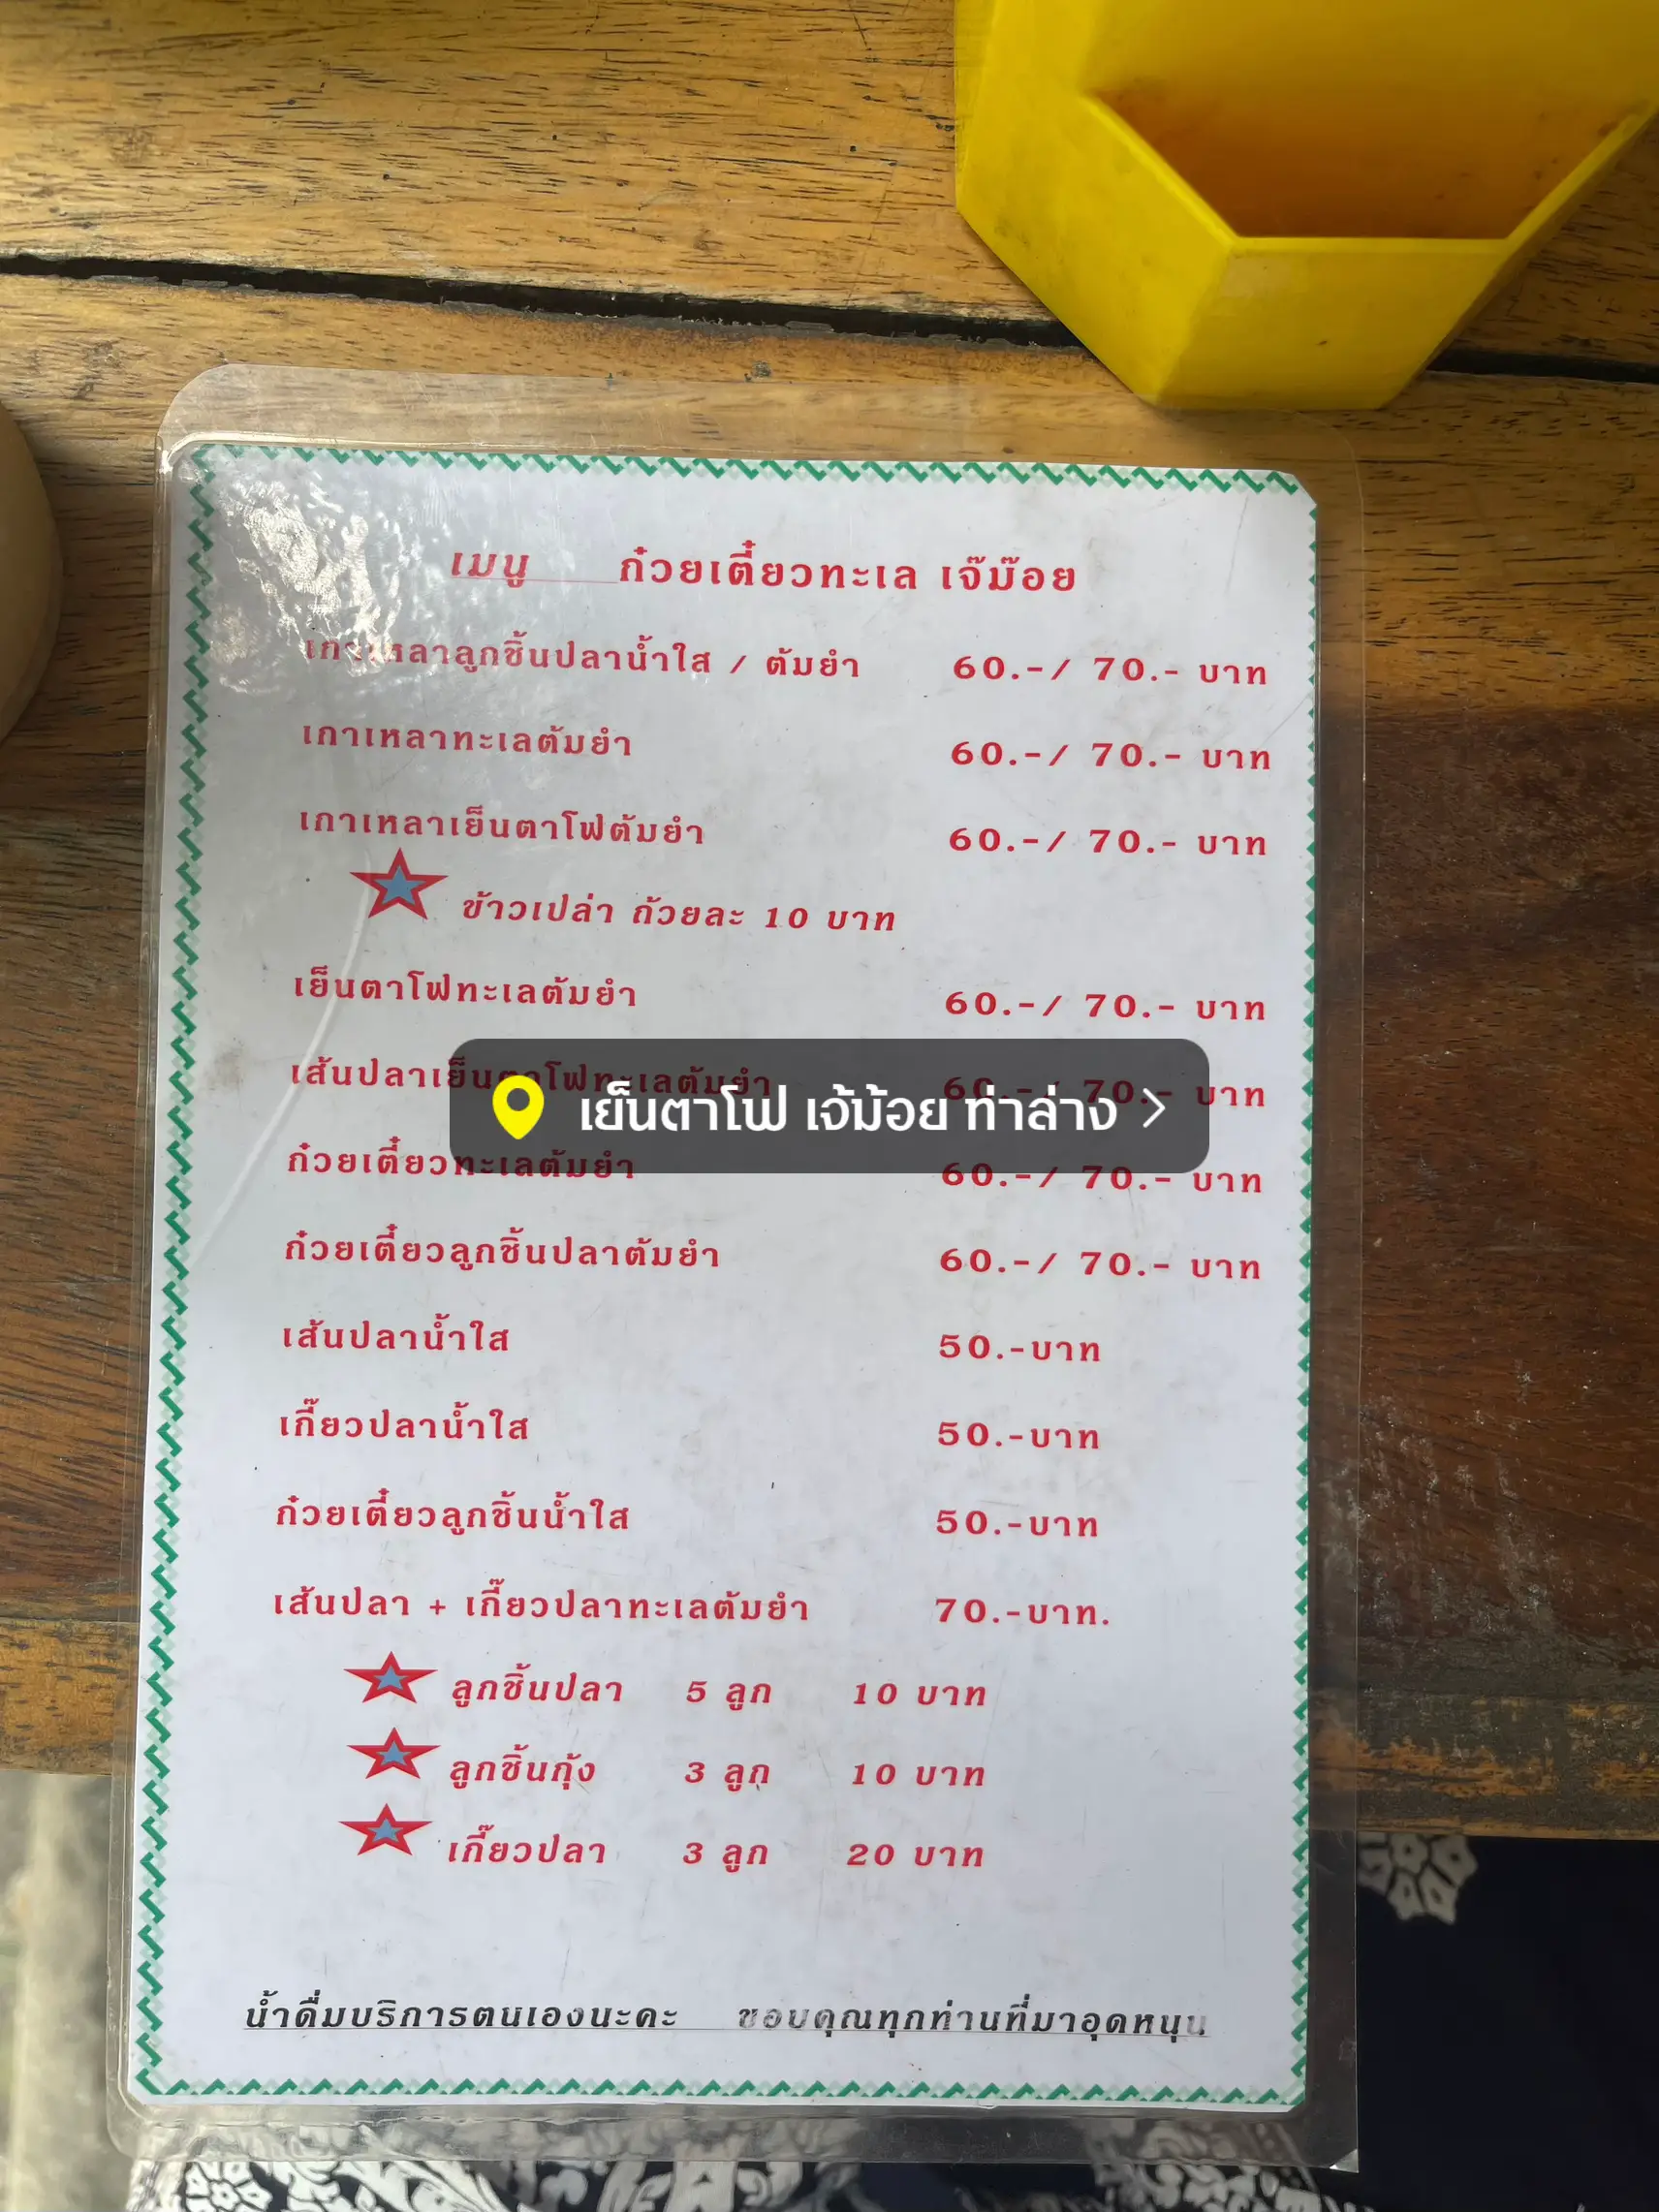 เมนู ก๋วยเตี๋ยวทะเล เจ๊ม๊อย
เกาเหลาลูกชิ้นปลาน้ำใส / ต้มยำ 60.-/ 70.- บาท
เกาเหลาทะเลต้มยำ 60.-/ 70.- บาท
เกาเหลาเย็นตาโฟต้มยำ 60.-/ 70.- บาท
ข้าวเปล่า ถ้วยละ 10 บาท
เย็นตาโฟทะเลต้มยำ 60.-/ 70.- บาท
เส้นปลาเย็นตาโฟทะเลต้มยำ 60.-/ 70.- บาท
เย็นตาโฟ เจ้ม้อย ท่าล่าง >
ก๋วยเตี๋ยวทะเลต้มยำ 60.-/ 70.- บาท
ก๋วยเตี๋ยวลูกชิ้นปลาต้มยำ 60.-/ 70.- บาท
เส้นปลาน้ำใส 50.-บาท
เกี๊ยวปลาน้ำใส 50.-บาท
ก๋วยเตี๋ยวลูกชิ้นน้ำใส 50.-บาท
เส้นปลา + เกี๊ยวปลาทะเลต้มยำ 70.-บาท.
ลูกชิ้นปลา 5 ลูก 10 บาท
ลูกชิ้นกุ้ง 3 ลูก 10 บาท
เกี๊ยวปลา 3 ลูก 20 บาท
น้ำดื่มบริการตนเองนะคะ ขอบคุณทุกท่านที่มาอุดหนุน